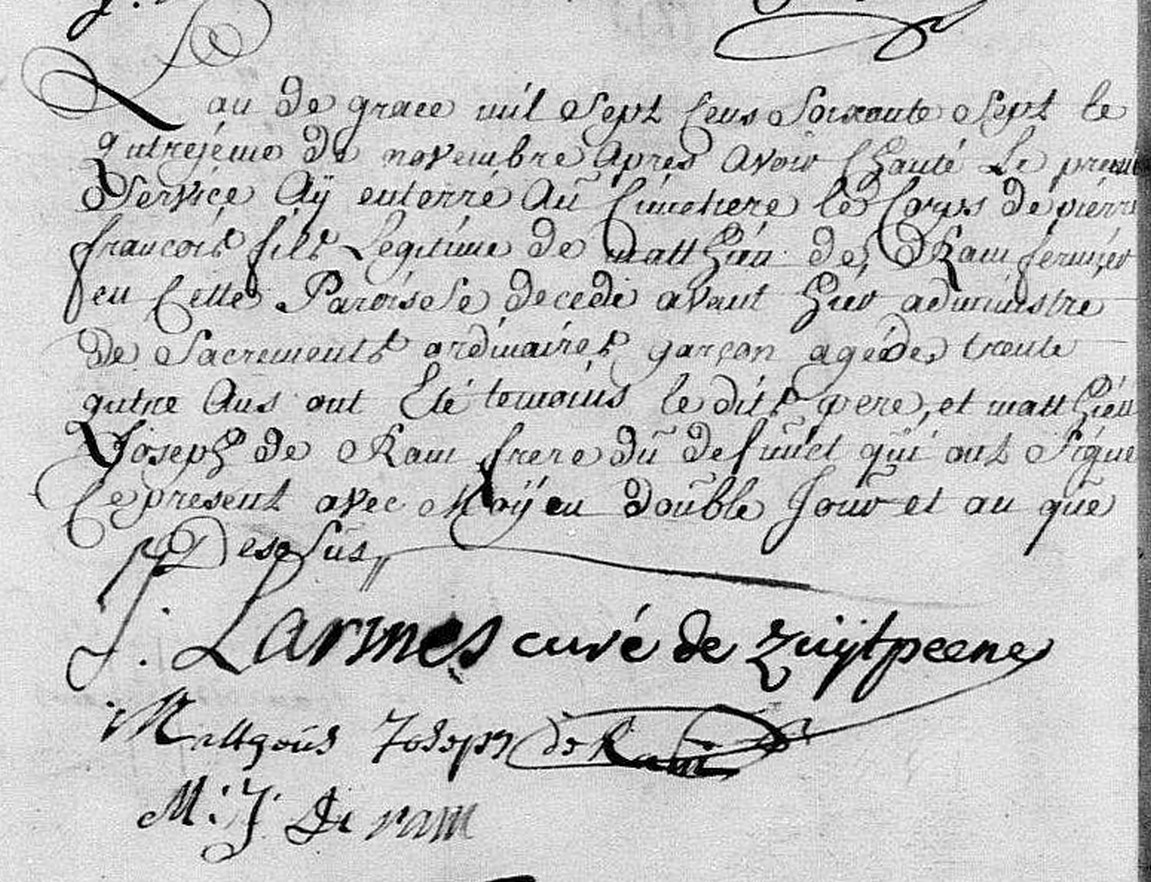 L'an de grace mil Sept Cens Soixante Sept le
qutrejéme de novembre apres avoir Chanté Le premier
Service Aÿ enterré Au Cimetiere le Corps de pierre
françois fils Legitime de matthieu de Ram fermier
en Cette Paroisse decedé avant hier administré
de Sacrements ordinaires garçon agé de trente
qutre Ans ont Eté temoins le dit pere, et matthieu
Joseph de Ram frere du defunct qui ont Signé
Ce present avec Moÿ en double Jour et an que
Dessus
J. Larmes curé de Zuijtpeene
Mattheus Joseph de Ram
M: J De ram